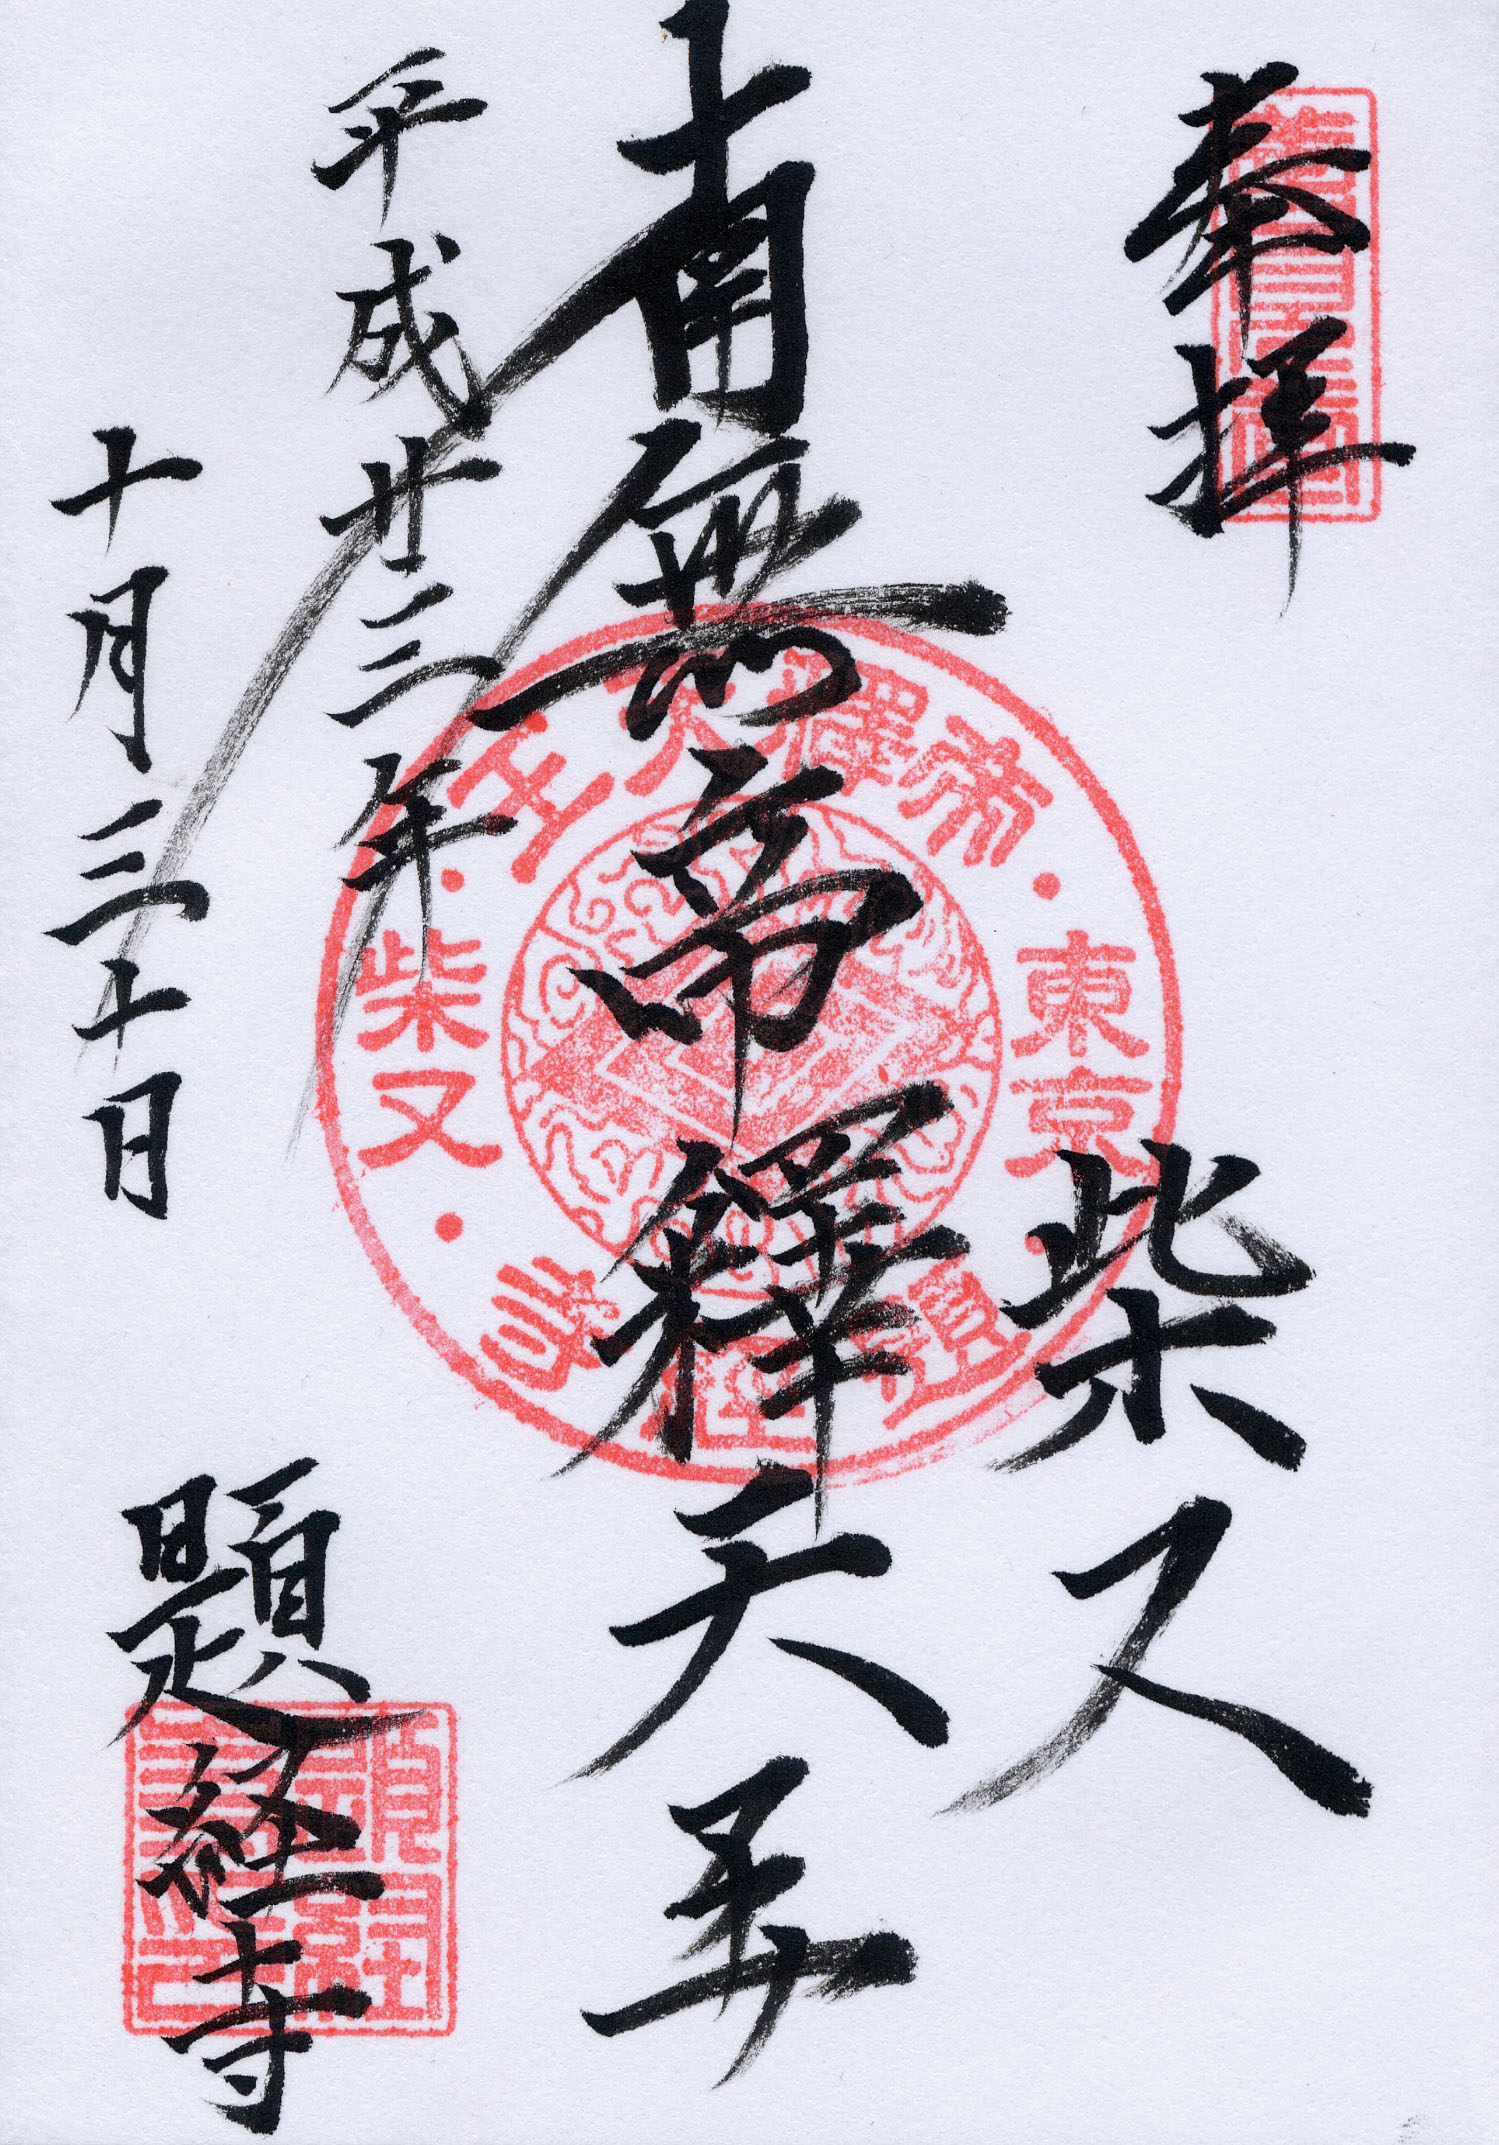 奉拝
柴又
南無帝釋天王
平成廿三年
十月三十日
題経寺
帝釋天王
東京
柴又